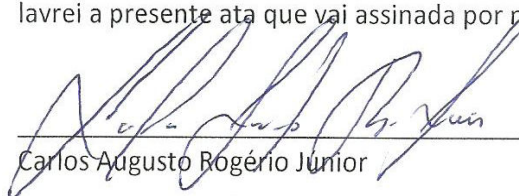 lavrei a presente ata que vai assinada por
Carlos Augusto Rogério Júnior